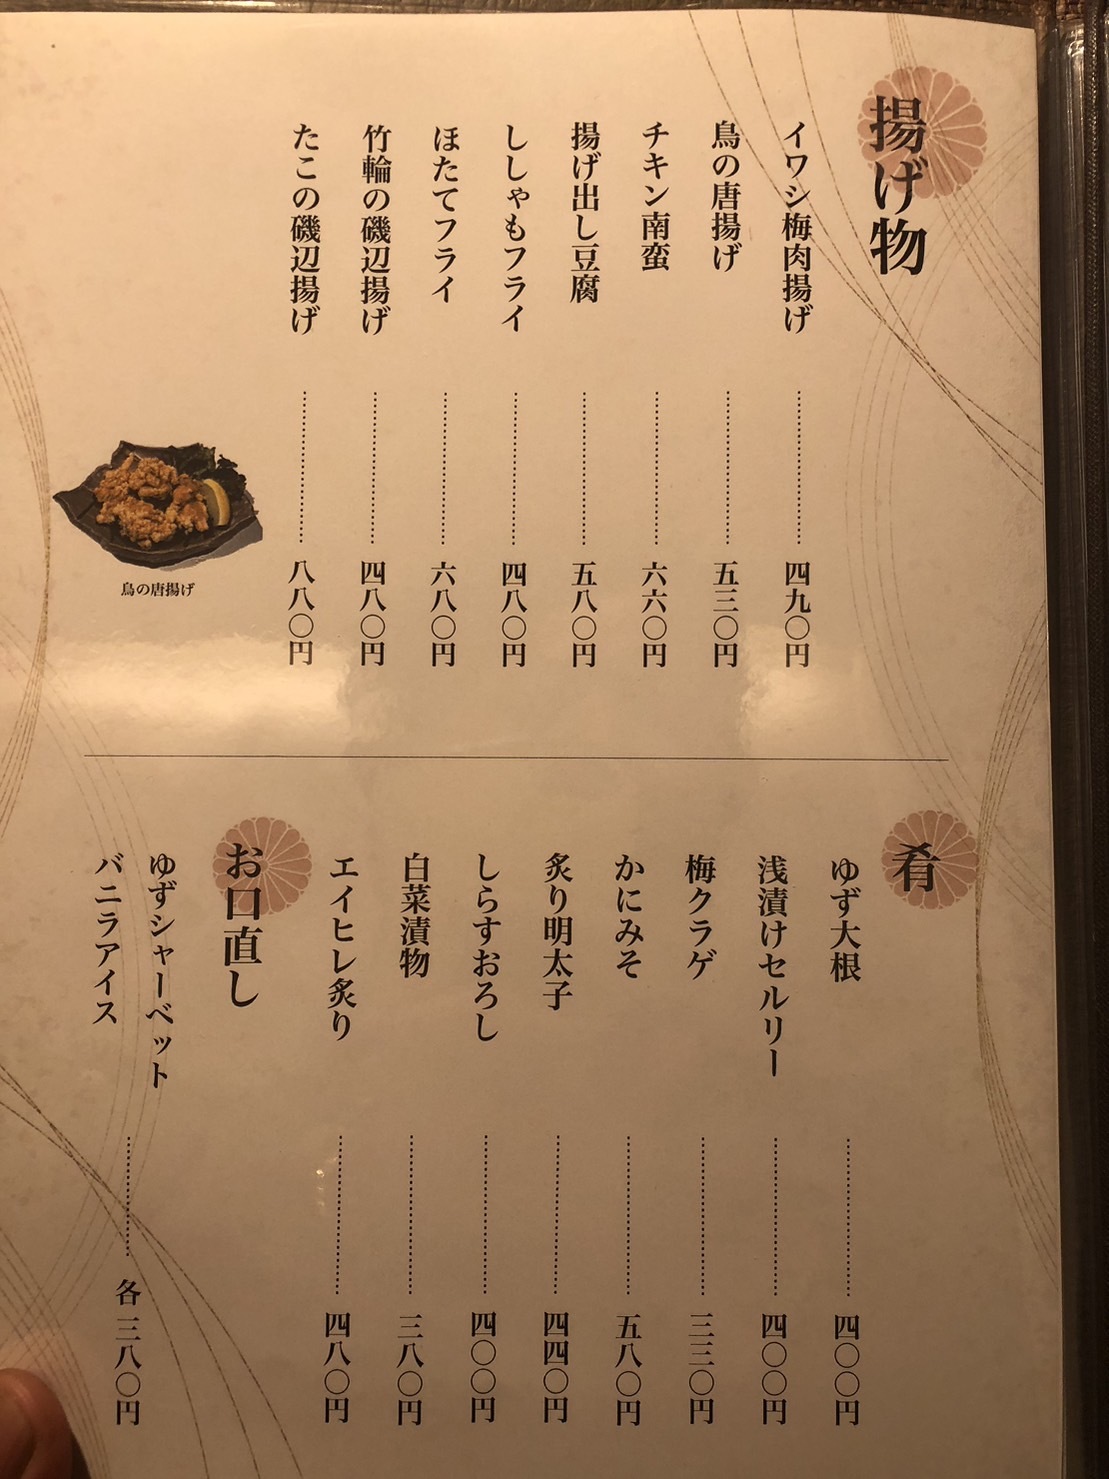 揚げ物
イワシ梅肉揚げ 四九〇円
鳥の唐揚げ 五三〇円
チキン南蛮 六六〇円
揚げ出し豆腐 五八〇円
ししゃもフライ 四八〇円
ほたてフライ 六八〇円
竹輪の磯辺揚げ 四八〇円
たこの磯辺揚げ 八八〇円
鳥の唐揚げ
肴
ゆず大根 四〇〇円
浅漬けセルリー 四〇〇円
梅クラゲ 三三〇円
かにみそ 五八〇円
炙り明太子 四四〇円
しらすおろし 四〇〇円
白菜漬物 三八〇円
エイヒレ炙り 四八〇円
お口直し
ゆずシャーベット
バニラアイス
各 三八〇円